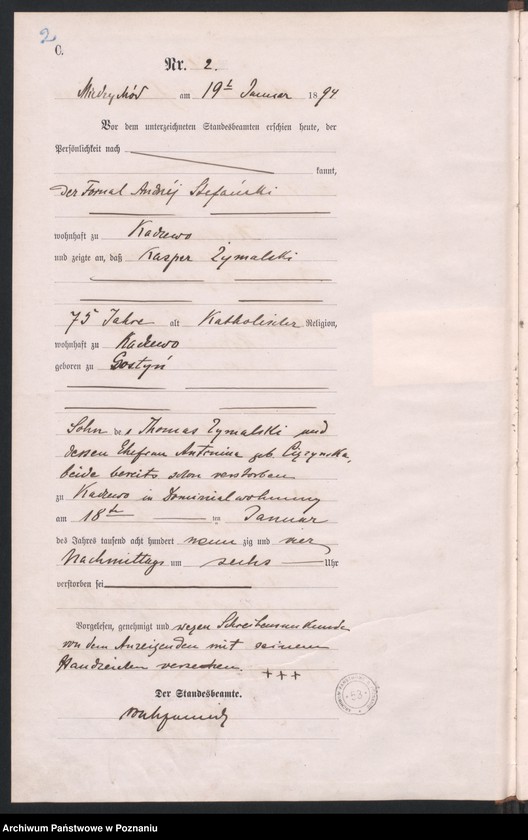 2
C.
Nr. 2.
am 19t Januar 1894
Vor dem unterzeichneten Standesbeamten erschien heute, der
Persönlichkeit nach
kannt,
Der Fornal Andréj Stefański
wohnhaft zu Kadzewo
und zeigte an, daß Kasper Zymalski
75 Jahre alt Katholischer Religion,
wohnhaft zu Kadzewo
geboren zu Gostyń
Sohn des Thomas Zymalski und
dessen Ehefrau Antonina geb.
beide bereits schon verstorben
zu Kadzewo in Dominialwohnung
am 18ten ten Januar
des Jahres tausend acht hundert neunzig und vier
Nachmittags um sechs Uhr
verstorben sei
Vorgelesen, genehmigt und wegen Schreibensunkunde
von dem Anzeigenden mit seinem
Handzeichen versehen. +++
Der Standesbeamte.
53
Archiwum Państwowe w Poznaniu